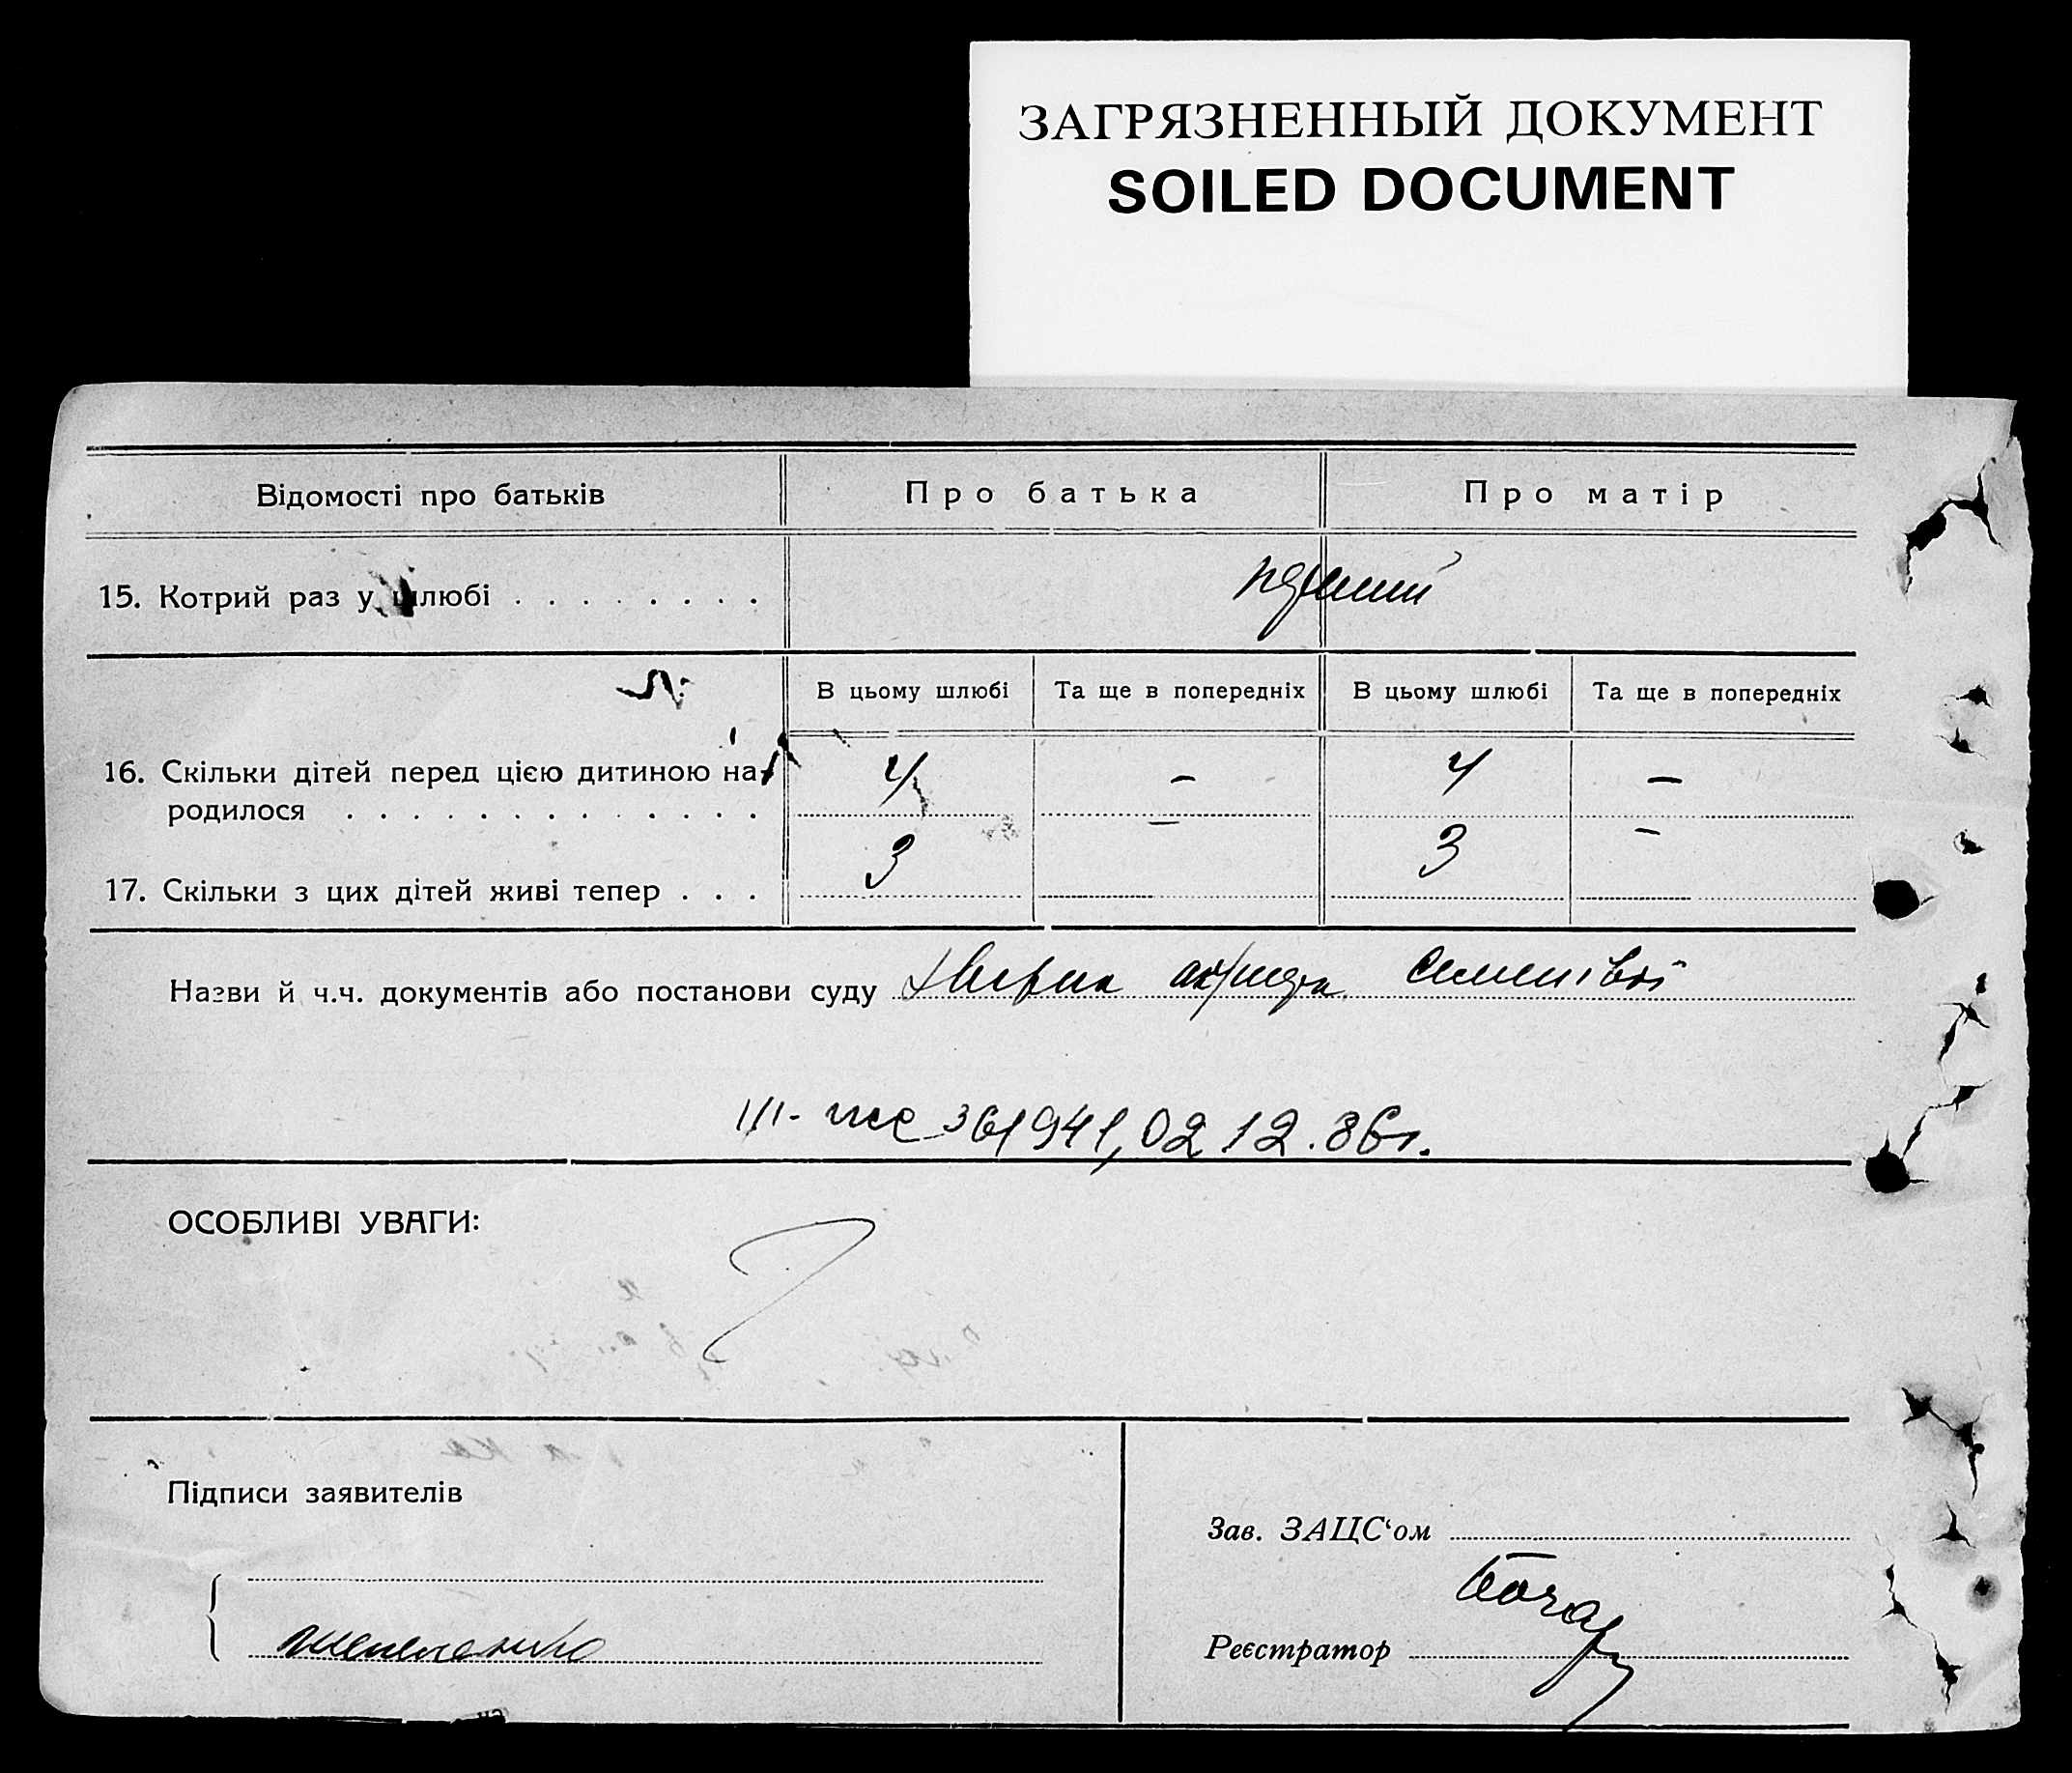 ЗАГРЯЗНЕННЫЙ ДОКУМЕНТ
SOILED DOCUMENT
Відомості про батьків
Про батька
Про матір
15. Котрий раз у шлюбі . . . . . . . .
В цьому шлюбі
Та ще в попередніх
В цьому шлюбі
Та ще в попередніх
16. Скільки дітей перед цією дитиною на-
родилося . . . . . . . . . . . . .
4 – 4 –
17. Скільки з цих дітей живі тепер . . .
3 – 3 –
Назви й ч.ч. документів або постанови суду
361941, 02 12. 86г.
ОСОБЛИВІ УВАГИ:
Підписи заявителів
Зав. ЗАЦС‘ом
Реєстратор